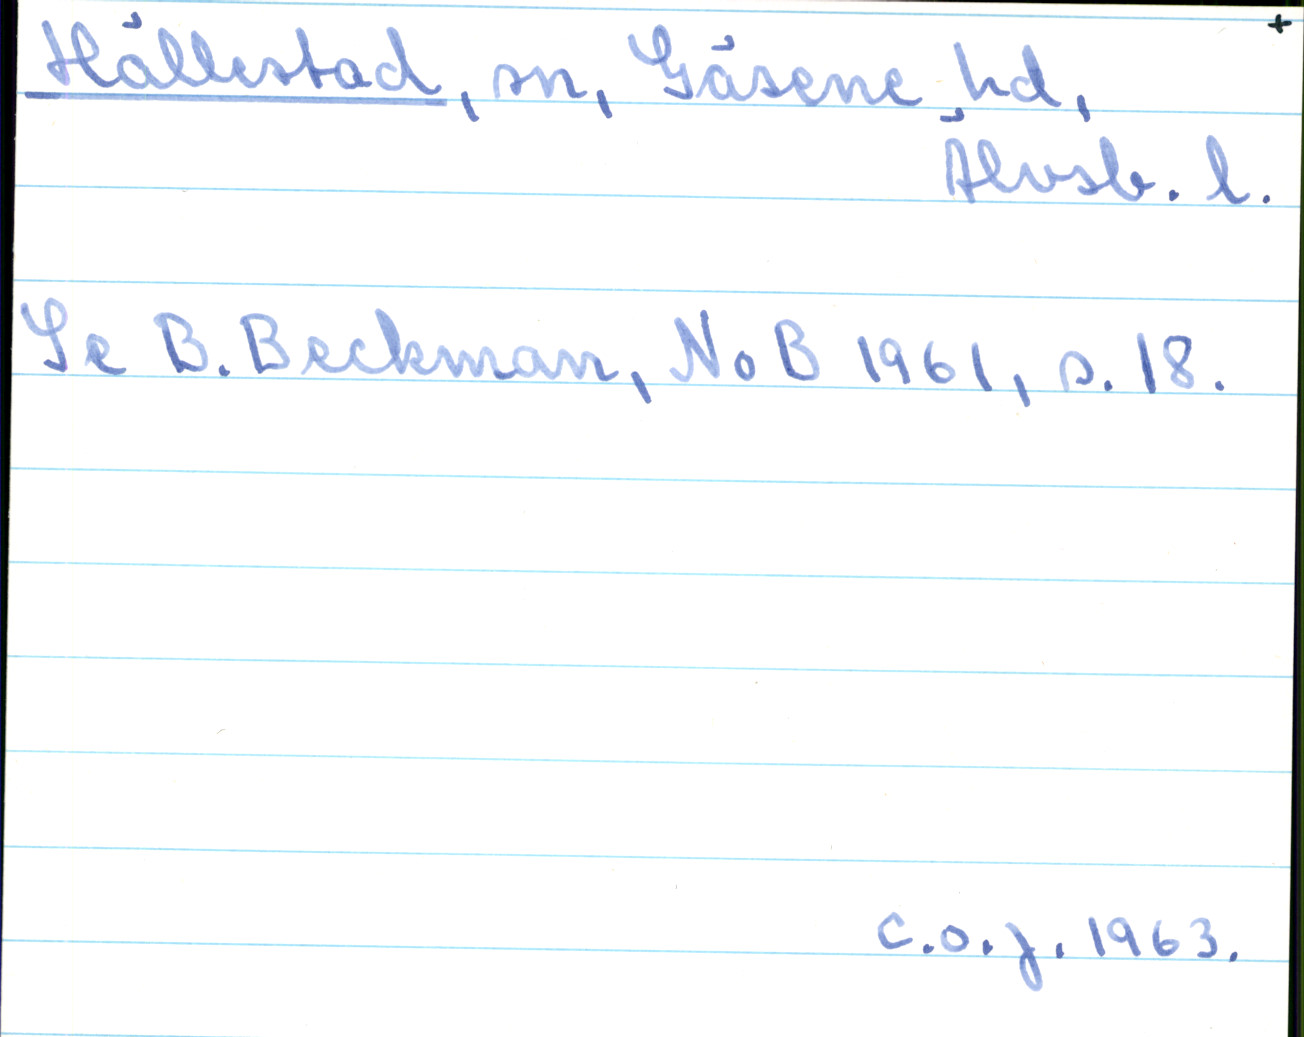 +
Hällestad, sn, Gäsene hd,
Älvsb. l.
Se B. Beckman, NoB 1961, s. 18.
C.O.J. 1963.